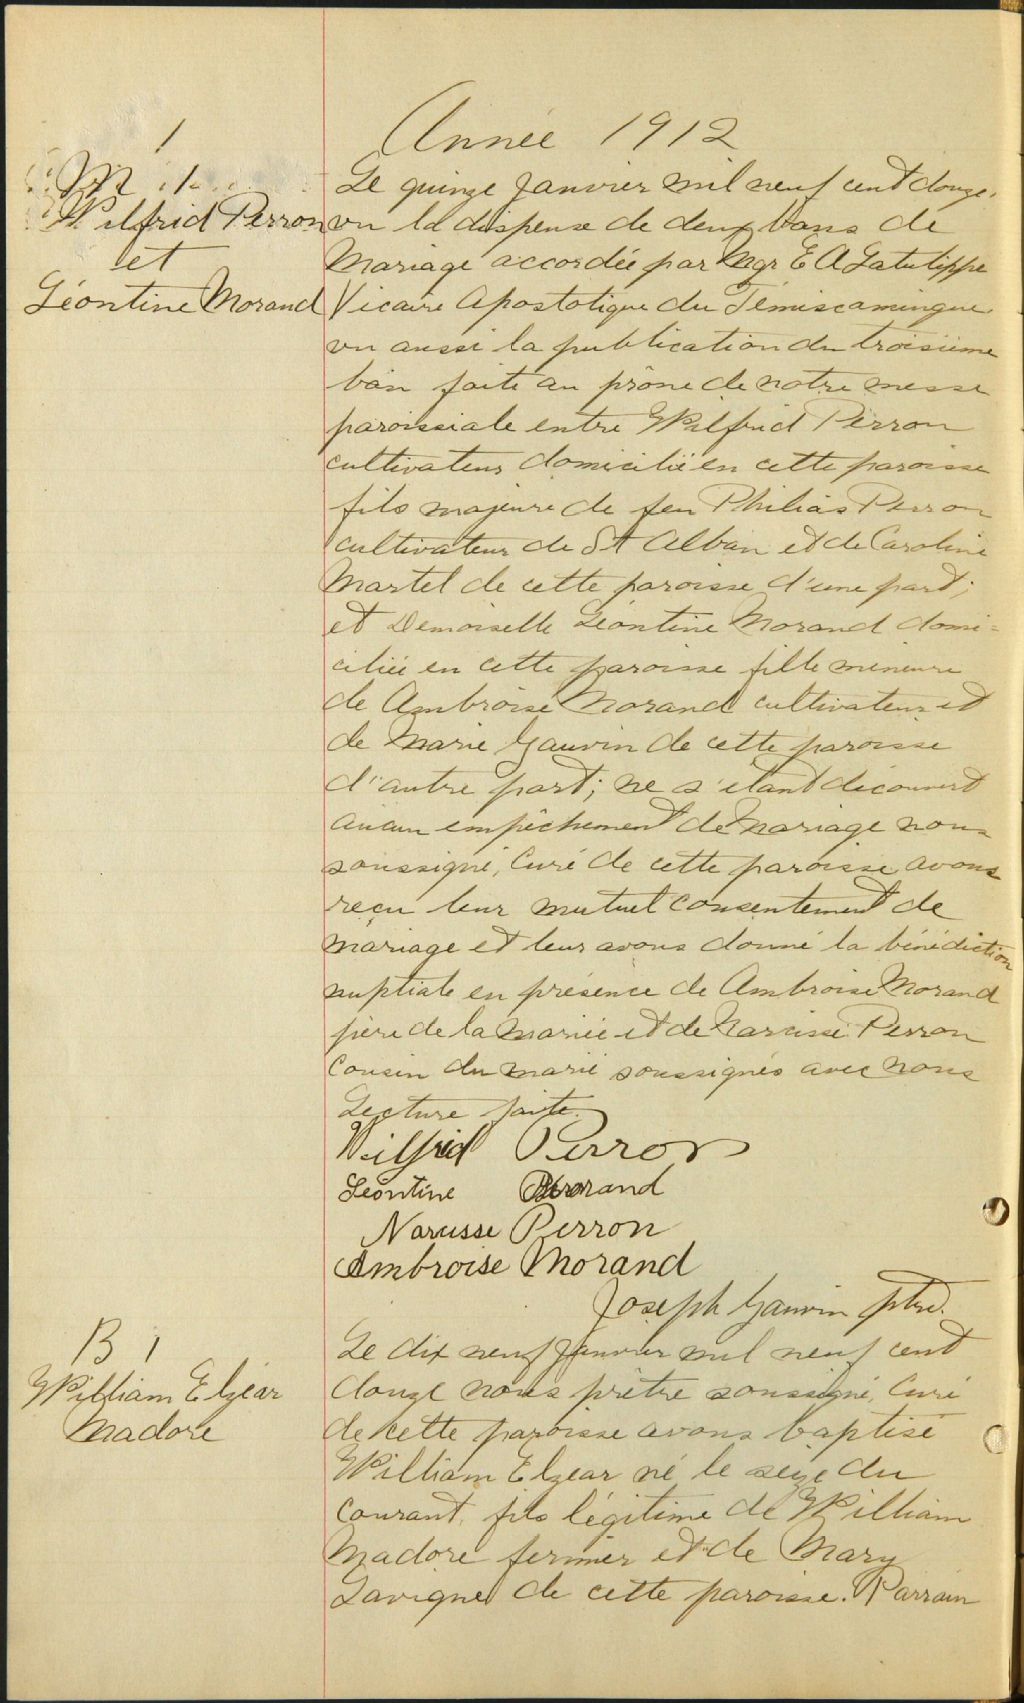 Année 1912
1
M. 1.
Wilfrid Perron
et
Léontine Morand
Le quinze janvier mil neuf cent douze,
vu la dispense de deux bans de
Mariage accordée par Mgr E A Latulippe
Vicaire Apostolique du Témiscamingue.
vu aussi la publication du troisième
ban faite au prône de notre messe
paroissiale entre Wilfrid Perron
cultivateur domicilié en cette paroisse
fils majeure de feu Philias Perron
cultivateur de St Alban et de Caroline
Martel de cette paroisse d'une part;
et Demoiselle Léontine Morand domi=
ciliée en cette paroisse fille mineure
de Ambroise Morand cultivateur et
de Marie Gauvin de cette paroisse
d'autre part; ne s'étant découvert
aucun empêchement de Mariage nous
soussigné, Curé de cette paroisse avons
reçu leur mutuel consentement de
mariage et leur avons donné la bénédiction
nuptiale en présence de Ambroise Morand
père de la Mariée et de Narcisse Perron
Cousin du marié soussignés avec nous
Lecture faite.
Wilfrid Perron
Léontine Morand
Narcisse Perron
Ambroise Morand
Joseph Gauvin ptre.
B 1
William Elzéar
Madore
Le dix neuf Janvier mil neuf cent
douze nous prêtre soussigné, Curé
de cette paroisse avons baptisé
William Elzear né le seize du
courant, fils légitime de William
Madore fermier et de Mary
Lavigne de cette paroisse. Parrain